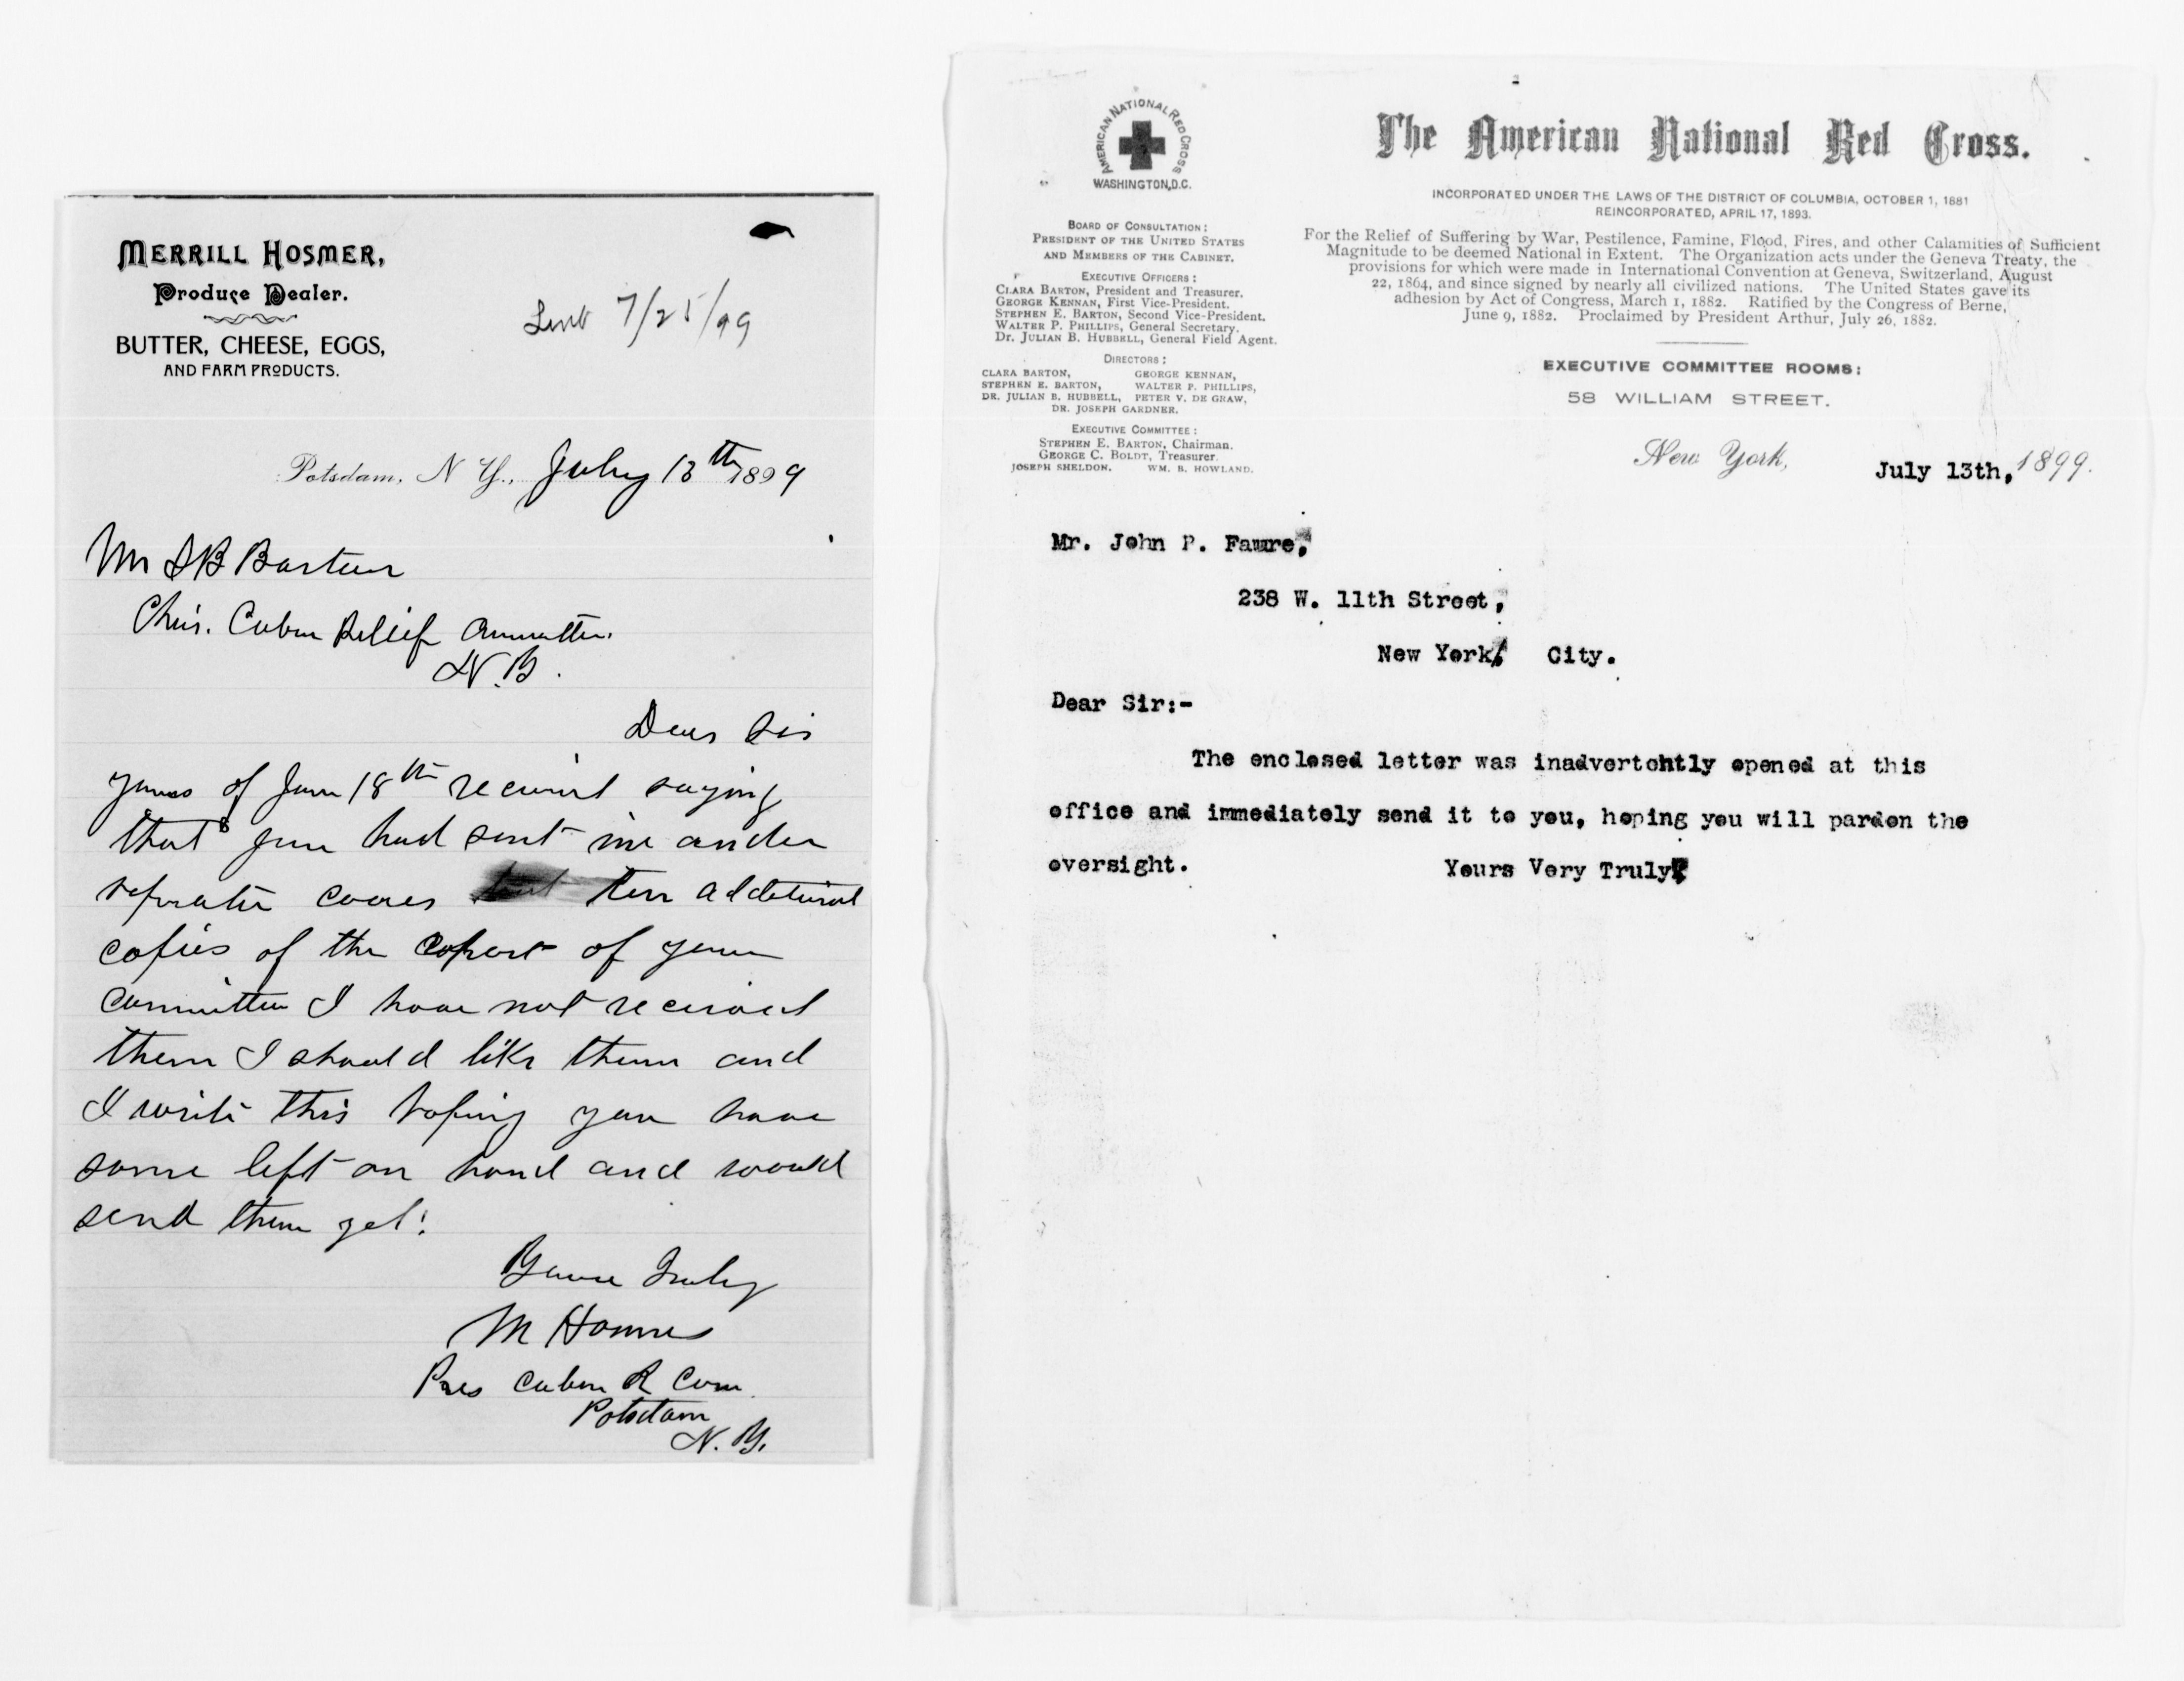 MERRILL HOSMER,
Produce Dealer.
BUTTER, CHEESE, EGGS,
AND FARM PRODUCTS.
Sent 7/25/99
Potsdam, N. Y., July 13th 1899
Mr S B Barton
Chr. Cuban Relief Committee.
N.Y.
Dear Sir
yours of June 18th received saying
that you had sent me under
seperate cover ten additional
copies of the report of your
Committee I have not received
them I should like them and
I write this hoping you have
some left on hand and would
send them yet.
Yours Truly
M Hosmer
Pres Cuban R Com.
Potsdam
N. Y.
AMERICAN NATIONAL RED CROSS
WASHINGTON, D.C.
BOARD OF CONSULTATION:
PRESIDENT OF THE UNITED STATES
AND MEMBERS OF THE CABINET.
EXECUTIVE OFFICERS:
CLARA BARTON, President and Treasurer.
GEORGE KENNAN, First Vice-President.
STEPHEN E. BARTON, Second Vice-President.
WALTER P. PHILLIPS, General Secretary.
DR. JULIAN B. HUBBELL, General Field Agent.
DIRECTORS:
CLARA BARTON, GEORGE KENNAN,
STEPHEN E. BARTON, WALTER P. PHILLIPS,
DR. JULIAN B. HUBBELL, PETER V. DE GRAW,
DR. JOSEPH GARDNER.
EXECUTIVE COMMITTEE:
STEPHEN E. BARTON, Chairman.
GEORGE C. BOLDT, Treasurer.
JOSEPH SHELDON. WM. B. HOWLAND.
The American National Red Cross.
INCORPORATED UNDER THE LAWS OF THE DISTRICT OF COLUMBIA, OCTOBER 1, 1881
REINCORPORATED, APRIL 17, 1893.
For the Relief of Suffering by War, Pestilence, Famine, Flood, Fires, and other Calamities of Sufficient
Magnitude to be deemed National in Extent. The Organization acts under the Geneva Treaty, the
provisions for which were made in International Convention at Geneva, Switzerland, August
22, 1864, and since signed by nearly all civilized nations. The United States gave its
adhesion by Act of Congress, March 1, 1882. Ratified by the Congress of Berne,
June 9, 1882. Proclaimed by President Arthur, July 26, 1882.
EXECUTIVE COMMITTEE ROOMS:
58 WILLIAM STREET.
New York, July 13th, 1899.
Mr. John P. Faure,
238 W. 11th Street,
New York, City.
Dear Sir:-
The enclosed letter was inadvertehtly opened at this
office and immediately send it to you, hoping you will pardon the
oversight. Yours Very Truly,